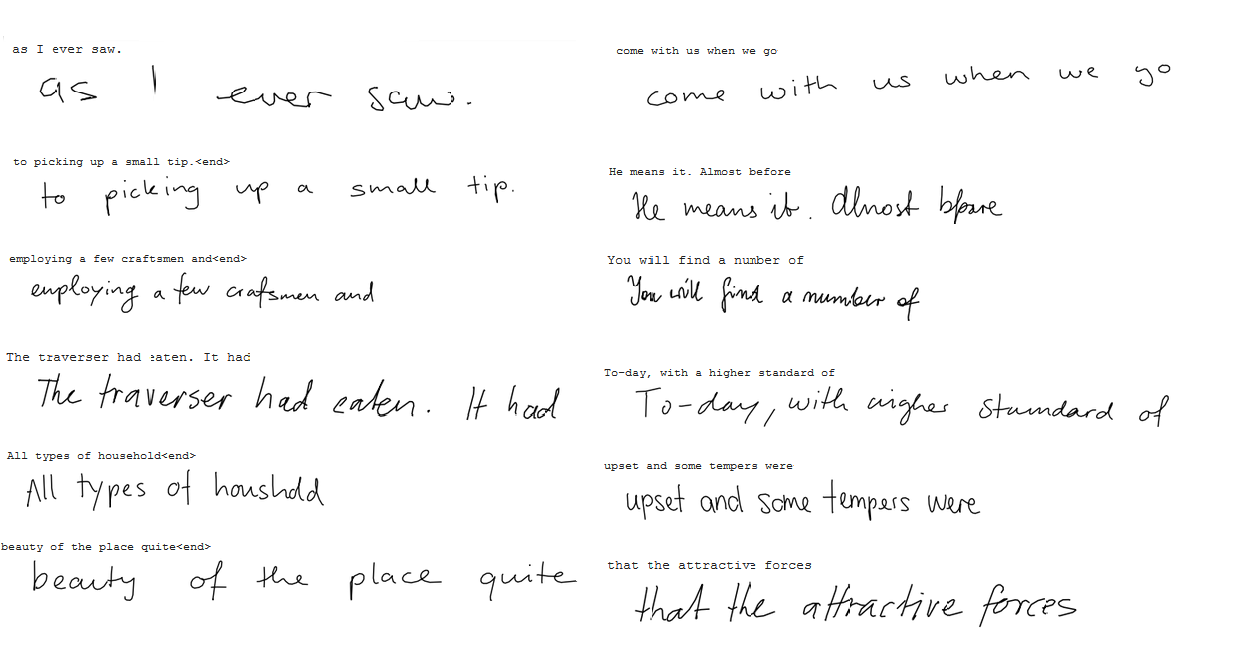 as I ever saw.
as I ever saw.
to picking up a small tip.<end>
to picking up a small tip.
employing a few craftsmen and<end>
employing a few crafsmen and
The traverser had eaten. It had
The traverser had eaten. It had
All types of household<end>
All types of houshold
beauty of the place quite<end>
beauty of the place quite
come with us when we go
come with us when we go
He means it. Almost before
He means it. Almost bfore
You will find a number of
You will find a number of
To-day, with a higher standard of
To-day, with aigher stumdard of
upset and some tempers were
upset and some tempers were
that the attractive forces
that the attractive forces